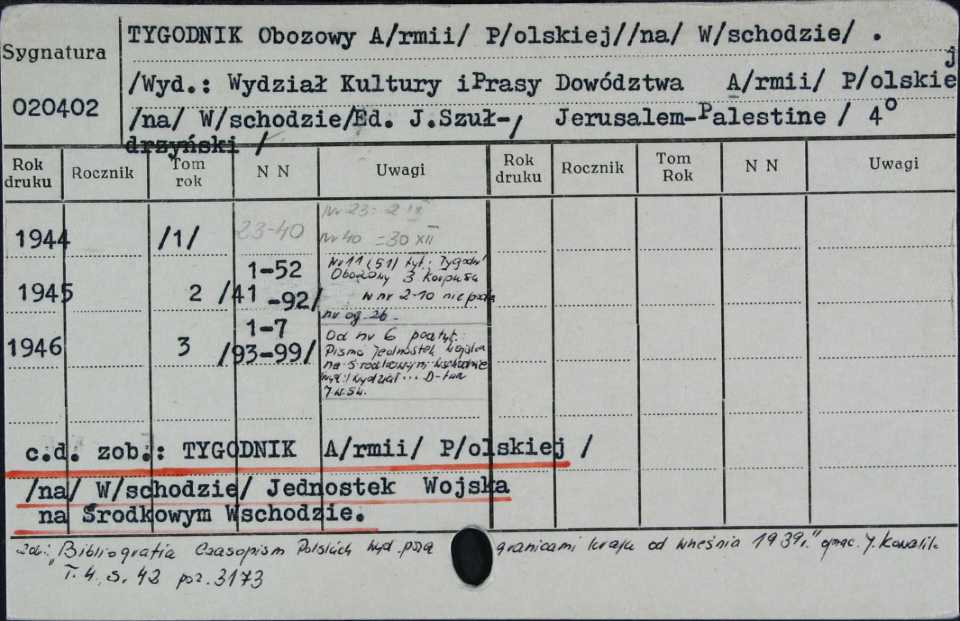 Sygnatura
020402
TYGODNIK Obozowy A/rmii/ P/olskiej//na/ W/schodzie/ .
/Wyd.: Wydział Kultury iPrasy Dowództwa A/rmii/ P/olskiej
/na/ W/schodzie/Ed. J.Szuł-/ Jerusalem-Palestine / 4°
drzyński /
Rok druku Rocznik Tom rok N N Uwagi Rok druku Rocznik Tom Rok N N Uwagi
1944 /1/ 23-40 Nr 23 = 2 IX
Nr 40 = 30 XII
1945 2 1-52 /41-92/ Nr 11 (51) tyt.: Tygodn.
Obozowy 3 Korpusu
w nr 2-10
nr og. 26.
1946 3 1-7 /93-99/ Od nr 6 podtyt.:
Pismo Jednostek Wojska
na Środkowym Wschodzie
wyd.: Wydział ... D-twa
J.W.Ś.W.
c.d. zob.: TYGODNIK A/rmii/ P/olskiej /
/na/ W/schodzie/ Jednostek Wojska
na Środkowym Wschodzie.
zob: "Bibliografia Czasopism Polskich wyd. poza granicami kraju od września 1939r." oprac. J. Kowalik
T. 4, s. 42 poz. 3173